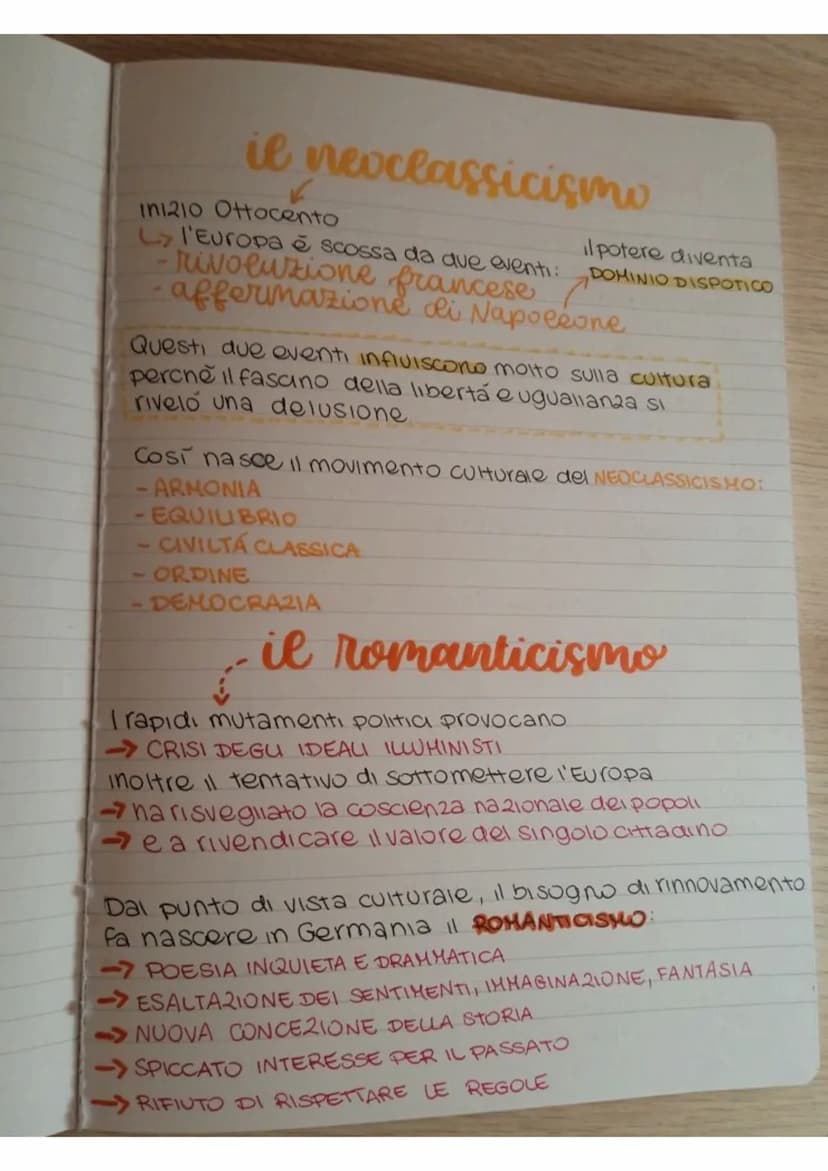 il neoclassicismo
INIZIO OTTOCENTO
l'Europa è scossa da due eventi:
- rivoluzione francese
- affermazione di Napoleone
il potere diventa
DOMINIO DISPOTICO
Questi due eventi influiscono molto sulla cultura
perché il fascino della libertá e uguaglianza si
riveló una delusione
Così nasce il movimento culturale del NEOCLASSICISMO:
- ARMONIA
- EQUILIBRIO
- CIVILTÁ CLASSICA
- ORDINE
- DEMOCRAZIA
il romanticismo
I rapidi mutamenti politici provocano
→ CRISI DEGLI IDEALI ILLUMINISTI
inoltre il tentativo di sottomettere l'Europa
→ ha risvegliato la coscienza nazionale dei popoli
→ e a rivendicare il valore del singolo cittadino
Dal punto di vista culturale, il bisogno di rinnovamento
fa nascere in Germania il ROMANTICISMO:
→ POESIA INQUIETA E DRAMMATICA
→ ESALTAZIONE DEI SENTIMENTI, IMMAGINAZIONE, FANTASIA
→ NUOVA CONCEZIONE DELLA STORIA
→ SPICCATO INTERESSE PER IL PASSATO
→ RIFIUTO DI RISPETTARE LE REGOLE